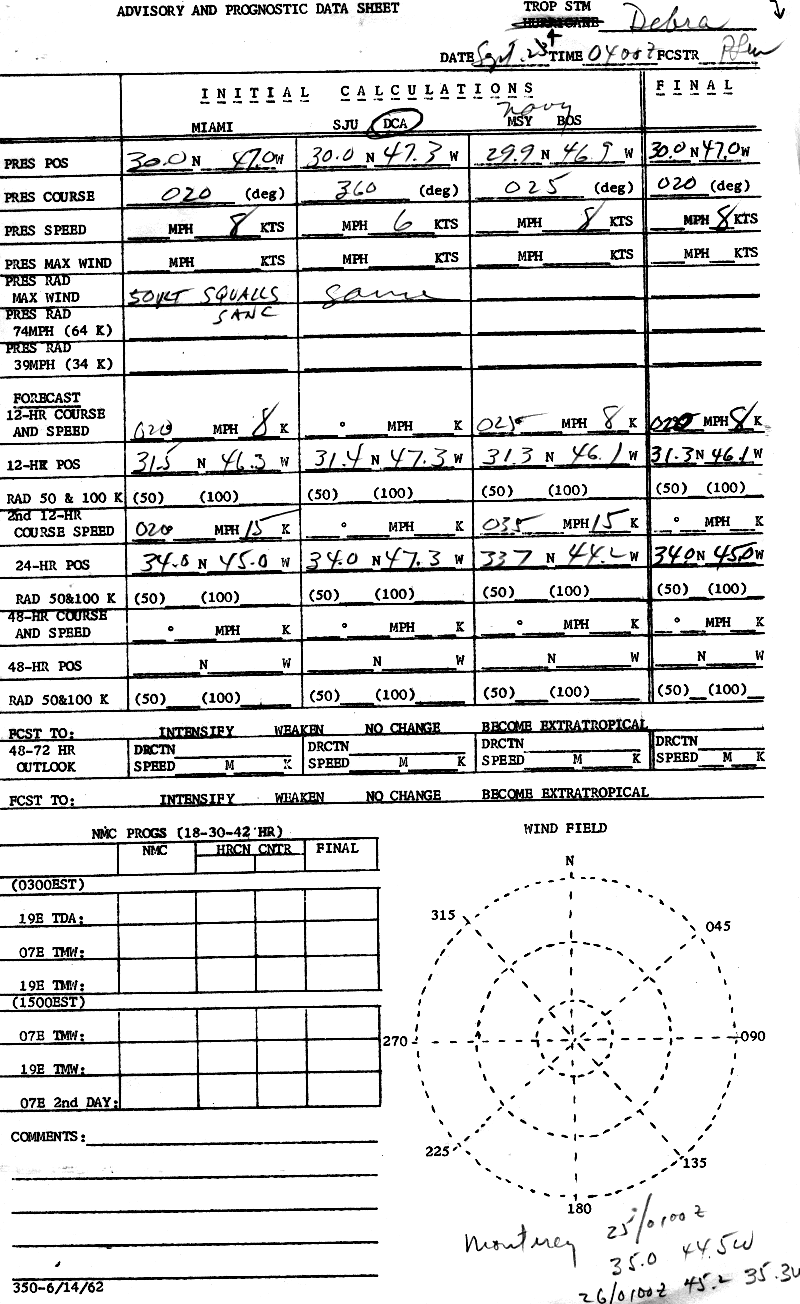 ADVISORY AND PROGNOSTIC DATA SHEET TROP STM
HURRICANE Debra
DATE Sept. 23 TIME 0400Z FCSTR
INITIAL CALCULATIONS FINAL
navy
MIAMI SJU DCA MSY BOS
PRES POS 30.0 N 47.0 W 30.0 N 47.3 W 29.9 N 46.9 W 30.0 N 47.0 W
PRES COURSE 020 (deg) 360 (deg) 025 (deg) 020 (deg)
PRES SPEED MPH 8 KTS MPH 6 KTS MPH 8 KTS MPH 8 KTS
PRES MAX WIND MPH KTS MPH KTS MPH KTS MPH KTS
PRES RAD
MAX WIND 50KT SQUALLS same
PRES RAD SANC
74MPH (64 K)
PRES RAD
39MPH (34 K)
FORECAST
12-HR COURSE
AND SPEED 020 MPH 8 K ° MPH K 025 MPH 8 K 020 MPH 8 K
12-HR POS 31.5 N 46.3 W 31.4 N 47.3 W 31.3 N 46.1 W 31.3 N 46.1 W
RAD 50 & 100 K (50) (100) (50) (100) (50) (100) (50) (100)
2nd 12-HR
COURSE SPEED 020 MPH 15 K ° MPH K 035 MPH 15 K ° MPH K
24-HR POS 34.0 N 45.0 W 34.0 N 47.3 W 33.7 N 44.2 W 34.0 N 45.0 W
RAD 50&100 K (50) (100) (50) (100) (50) (100) (50) (100)
48-HR COURSE
AND SPEED ° MPH K ° MPH K ° MPH K ° MPH K
48-HR POS N W N W N W N W
RAD 50&100 K (50) (100) (50) (100) (50) (100) (50) (100)
FCST TO: INTENSIFY WEAKEN NO CHANGE BECOME EXTRATROPICAL
48-72 HR DRCTN DRCTN DRCTN DRCTN
OUTLOOK SPEED M K SPEED M K SPEED M K SPEED M K
FCST TO: INTENSIFY WEAKEN NO CHANGE BECOME EXTRATROPICAL
NMC PROGS (18-30-42 HR)
NMC HRCN CNTR FINAL
(0300EST)
19E TDA:
07E TMW:
19E TMW:
(1500EST)
07E TMW:
19E TMW:
07E 2nd DAY:
COMMENTS:
350-6/14/62
WIND FIELD
N
315 045
270 090
225 135
180
Monterey 25/0100Z
35.0 44.5W
26/0100Z 45.2 35.3W